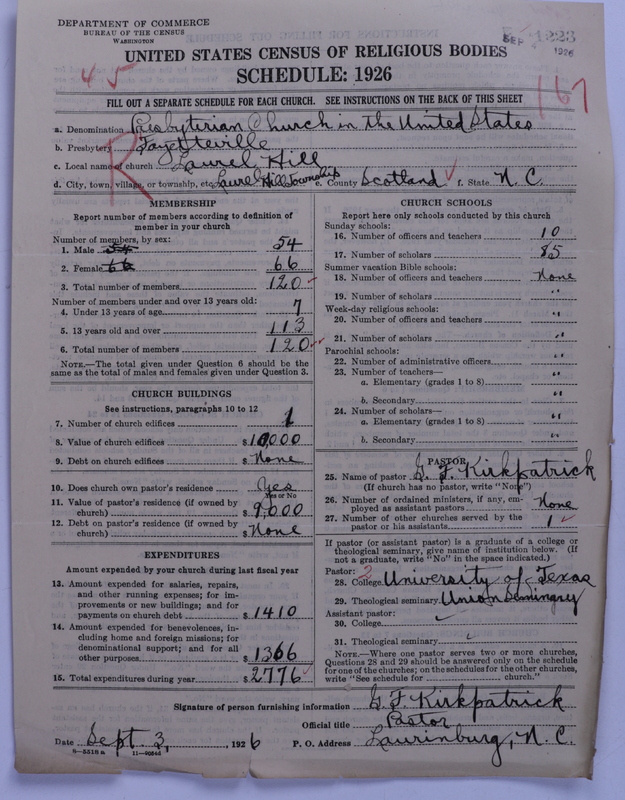 DEPARTMENT OF COMMERCE
BUREAU OF THE CENSUS
WASHINGTON
SEP 1223
1926
UNITED STATES CENSUS OF RELIGIOUS BODIES
SCHEDULE: 1926
45
167
FILL OUT A SEPARATE SCHEDULE FOR EACH CHURCH. SEE INSTRUCTIONS ON THE BACK OF THIS SHEET
a. Denomination Presbyterian Church in the United States
b. Presbytery Fayetteville
c. Local name of church Laurel Hill
d. City, town, village, or township, etc. Laurel Hill Township e. County Scotland f. State N.C.
R
MEMBERSHIP
Report number of members according to definition of
member in your church
Number of members, by sex:
1. Male 54 54
2. Female 66 66
3. Total number of members 120
Number of members under and over 13 years old:
4. Under 13 years of age 7
5. 13 years old and over 113
6. Total number of members 120
NOTE.—The total given under Question 6 should be
same as the total of males and females given under Question 3.
CHURCH BUILDINGS
See instructions, paragraphs 10 to 12
7. Number of church edifices 1
8. Value of church edifices $10000
9. Debt on church edifices $None
10. Does church own pastor's residence? Yes
Yes or No
11. Value of pastor's residence (if owned by
church) $9,000
12. Debt on pastor's residence (if owned by
church) $None
EXPENDITURES
Amount expended by your church during last fiscal year
13. Amount expended for salaries, repairs,
and other running expenses; for im-
provements or new buildings; and for
payments on church debt $1410
14. Amount expended for benevolences, in-
cluding home and foreign missions; for
denominational support; and for all
other purposes $1366
15. Total expenditures during year $2776
CHURCH SCHOOLS
Report here only schools conducted by this church
Sunday schools:
16. Number of officers and teachers 10
17. Number of scholars 85
Summer vacation Bible schools:
18. Number of officers and teachers None
19. Number of scholars "
Week-day religious schools:
20. Number of officers and teachers "
21. Number of scholars "
Parochial schools:
22. Number of administrative officers "
23. Number of teachers—
a. Elementary (grades 1 to 8) "
b. Secondary "
24. Number of scholars—
a. Elementary (grades 1 to 8) "
b. Secondary "
PASTOR
25. Name of pastor G. F. Kirkpatrick
(If church has no pastor, write "None")
26. Number of ordained ministers, if any, em-
ployed as assistant pastors None
27. Number of other churches served by the
pastor or his assistants 1
If pastor (or assistant pastor) is a graduate of a college or
theological seminary, give name of institution below. (If
not a graduate, write "No" in the space indicated.)
Pastor: 2
28. College University of Texas
29. Theological seminary Union Seminary
Assistant pastor:
30. College
31. Theological seminary
NOTE.—Where one pastor serves two or more churches,
Questions 28 and 29 should be answered only on the schedule
for one of the churches; on the schedules for the other churches,
write "See schedule for church."
Signature of person furnishing information G. F. Kirkpatrick
Official title Pastor
Date Sept. 3, 1926 P. O. Address Laurinburg, N.C.
8—5318a 11—9056d